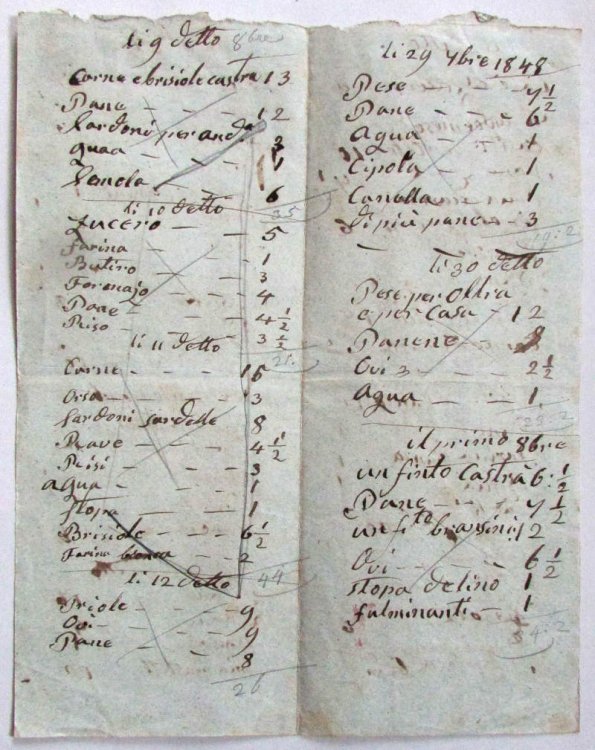 li 9 detto 8bre
Carne e brisiole castra 13
Pane - - - 12
Sardoni per and 3
guaa - - - 1
Semola - - - 6
35
li 10 detto
Zucero - - 5
farina - - - 1
Butiro - - - 3
Formajo - - 4
Pane - - - 4 1/2
Riso - - - 3 1/2
21.
li 11 detto
Carne - - - 15
Orsa - - - 3
Sardoni sardelle 8
Rave - - - 4 1/2
Risi - - - 3
agua - - - 1
stopa - - - 1
Brisiole - - - 6 1/2
Farina bianca - 2
44
li 12 detto
Priole - - - 9
Ovi - - - 9
Pane - - - 8
26
li 29 7bre 1848
Pese - - - 7 1/2
Pane - - - 6
agua - - - 1
Cipola - - 1
Canella - - 1
Di più pane - 3
19:2
li 30 detto
Pese per Oltra
e per casa - 12
Panene - 3 - 8
Ovi 3 - - - 2 1/2
agua - - - 1
23:2
il primo 8bre
un finto Castrà 6:1/2
Pane - - - 7 1/2
un fi.to bransini 12
Ovi - - - 6 1/2
stopa de lino 1
fulminanti - 1